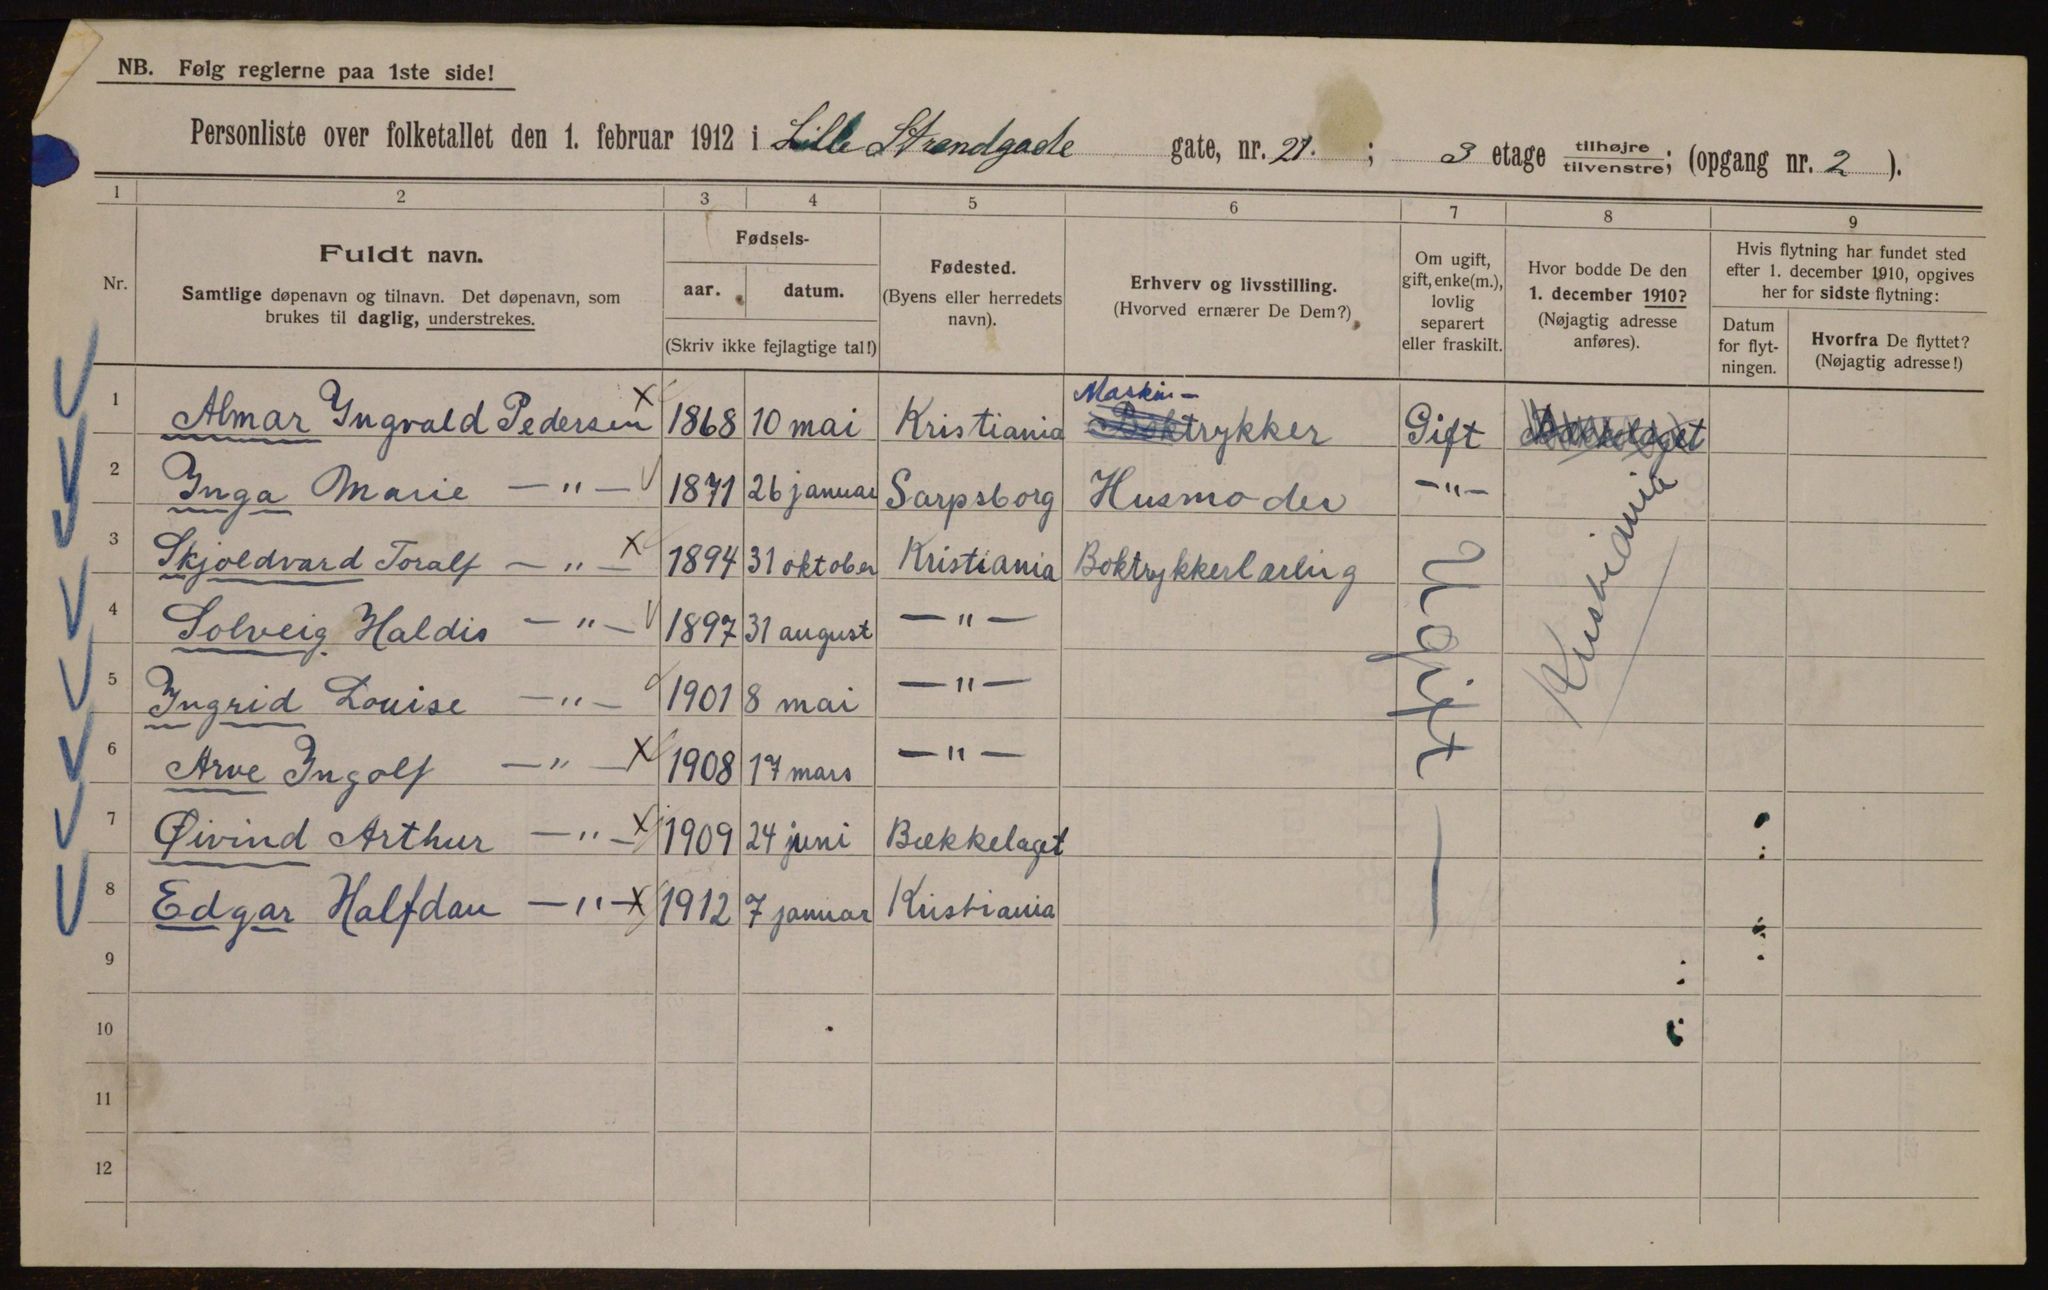 NB. Følg reglerne paa 1ste side!
Personliste over folketallet den 1. februar 1912 i Lille Strandgade gate, nr. 21. ; 3 etage tilhøjre/tilvenstre; (opgang nr. 2 ).
1 2 3 4 5 6 7 8 9
Nr.
Fuldt navn.
Samtlige døpenavn og tilnavn. Det døpenavn, som
brukes til daglig, understrekes.
Fødsels-
aar. datum.
(Skriv ikke fejlagtige tal!)
Fødested.
(Byens eller herredets
navn).
Erhverv og livsstilling.
(Hvorved ernærer De Dem?)
Om ugift,
gift, enke(m.),
lovlig
separert
eller fraskilt.
Hvor bodde De den
1. december 1910?
(Nøjagtig adresse
anføres).
Hvis flytning har fundet sted
efter 1. december 1910, opgives
her for sidste flytning:
Datum
for flyt-
ningen.
Hvorfra De flyttet?
(Nøjagtig adresse!)
Maskin-
1 Almar Yngvald Pedersen x 1868 10 mai Kristiania Boktrykker Gift Bækkelaget
2 Ynga Marie — " — 1871 26 januar Sarpsborg Husmoder — " —
3 Skjoldvard Toralf — " — x 1894 31 oktober Kristiania Boktrykkerlærling
4 Solveig Haldis — " — 1897 31 august — " —
5 Yngrid Louise — " — 1901 8 mai — " —
6 Arve Yngolf — " — x 1908 17 mars — " —
7 Øivind Arthur — " — x 1909 24 juni Bækkelaget
8 Edgar Halfdan — " — x 1912 7 januar Kristiania
Ugift
Kristiania
9
10
11
12